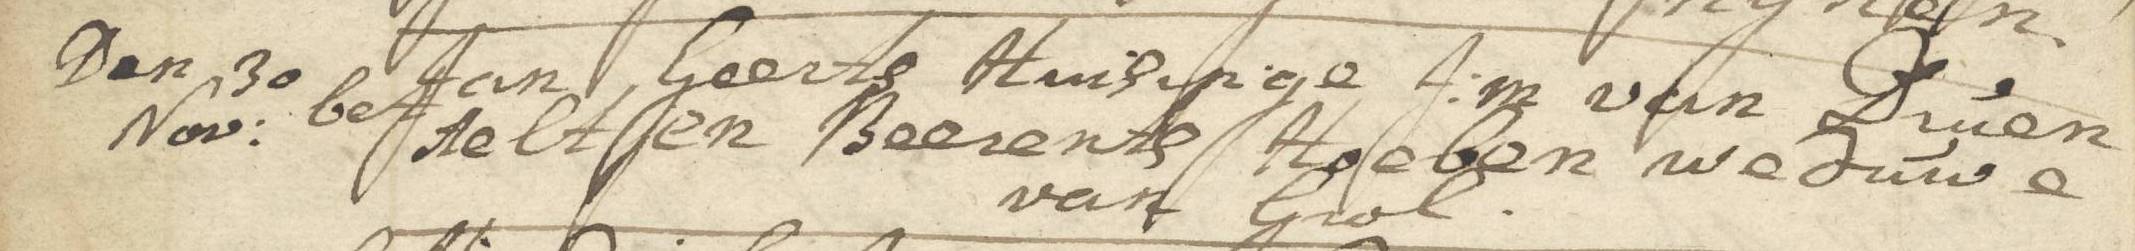 Den 30 Jan Geerts Huisinge J:m van Drúen
Nov: be Aeltjen Beerents Hoeben weduwe
van Grol.